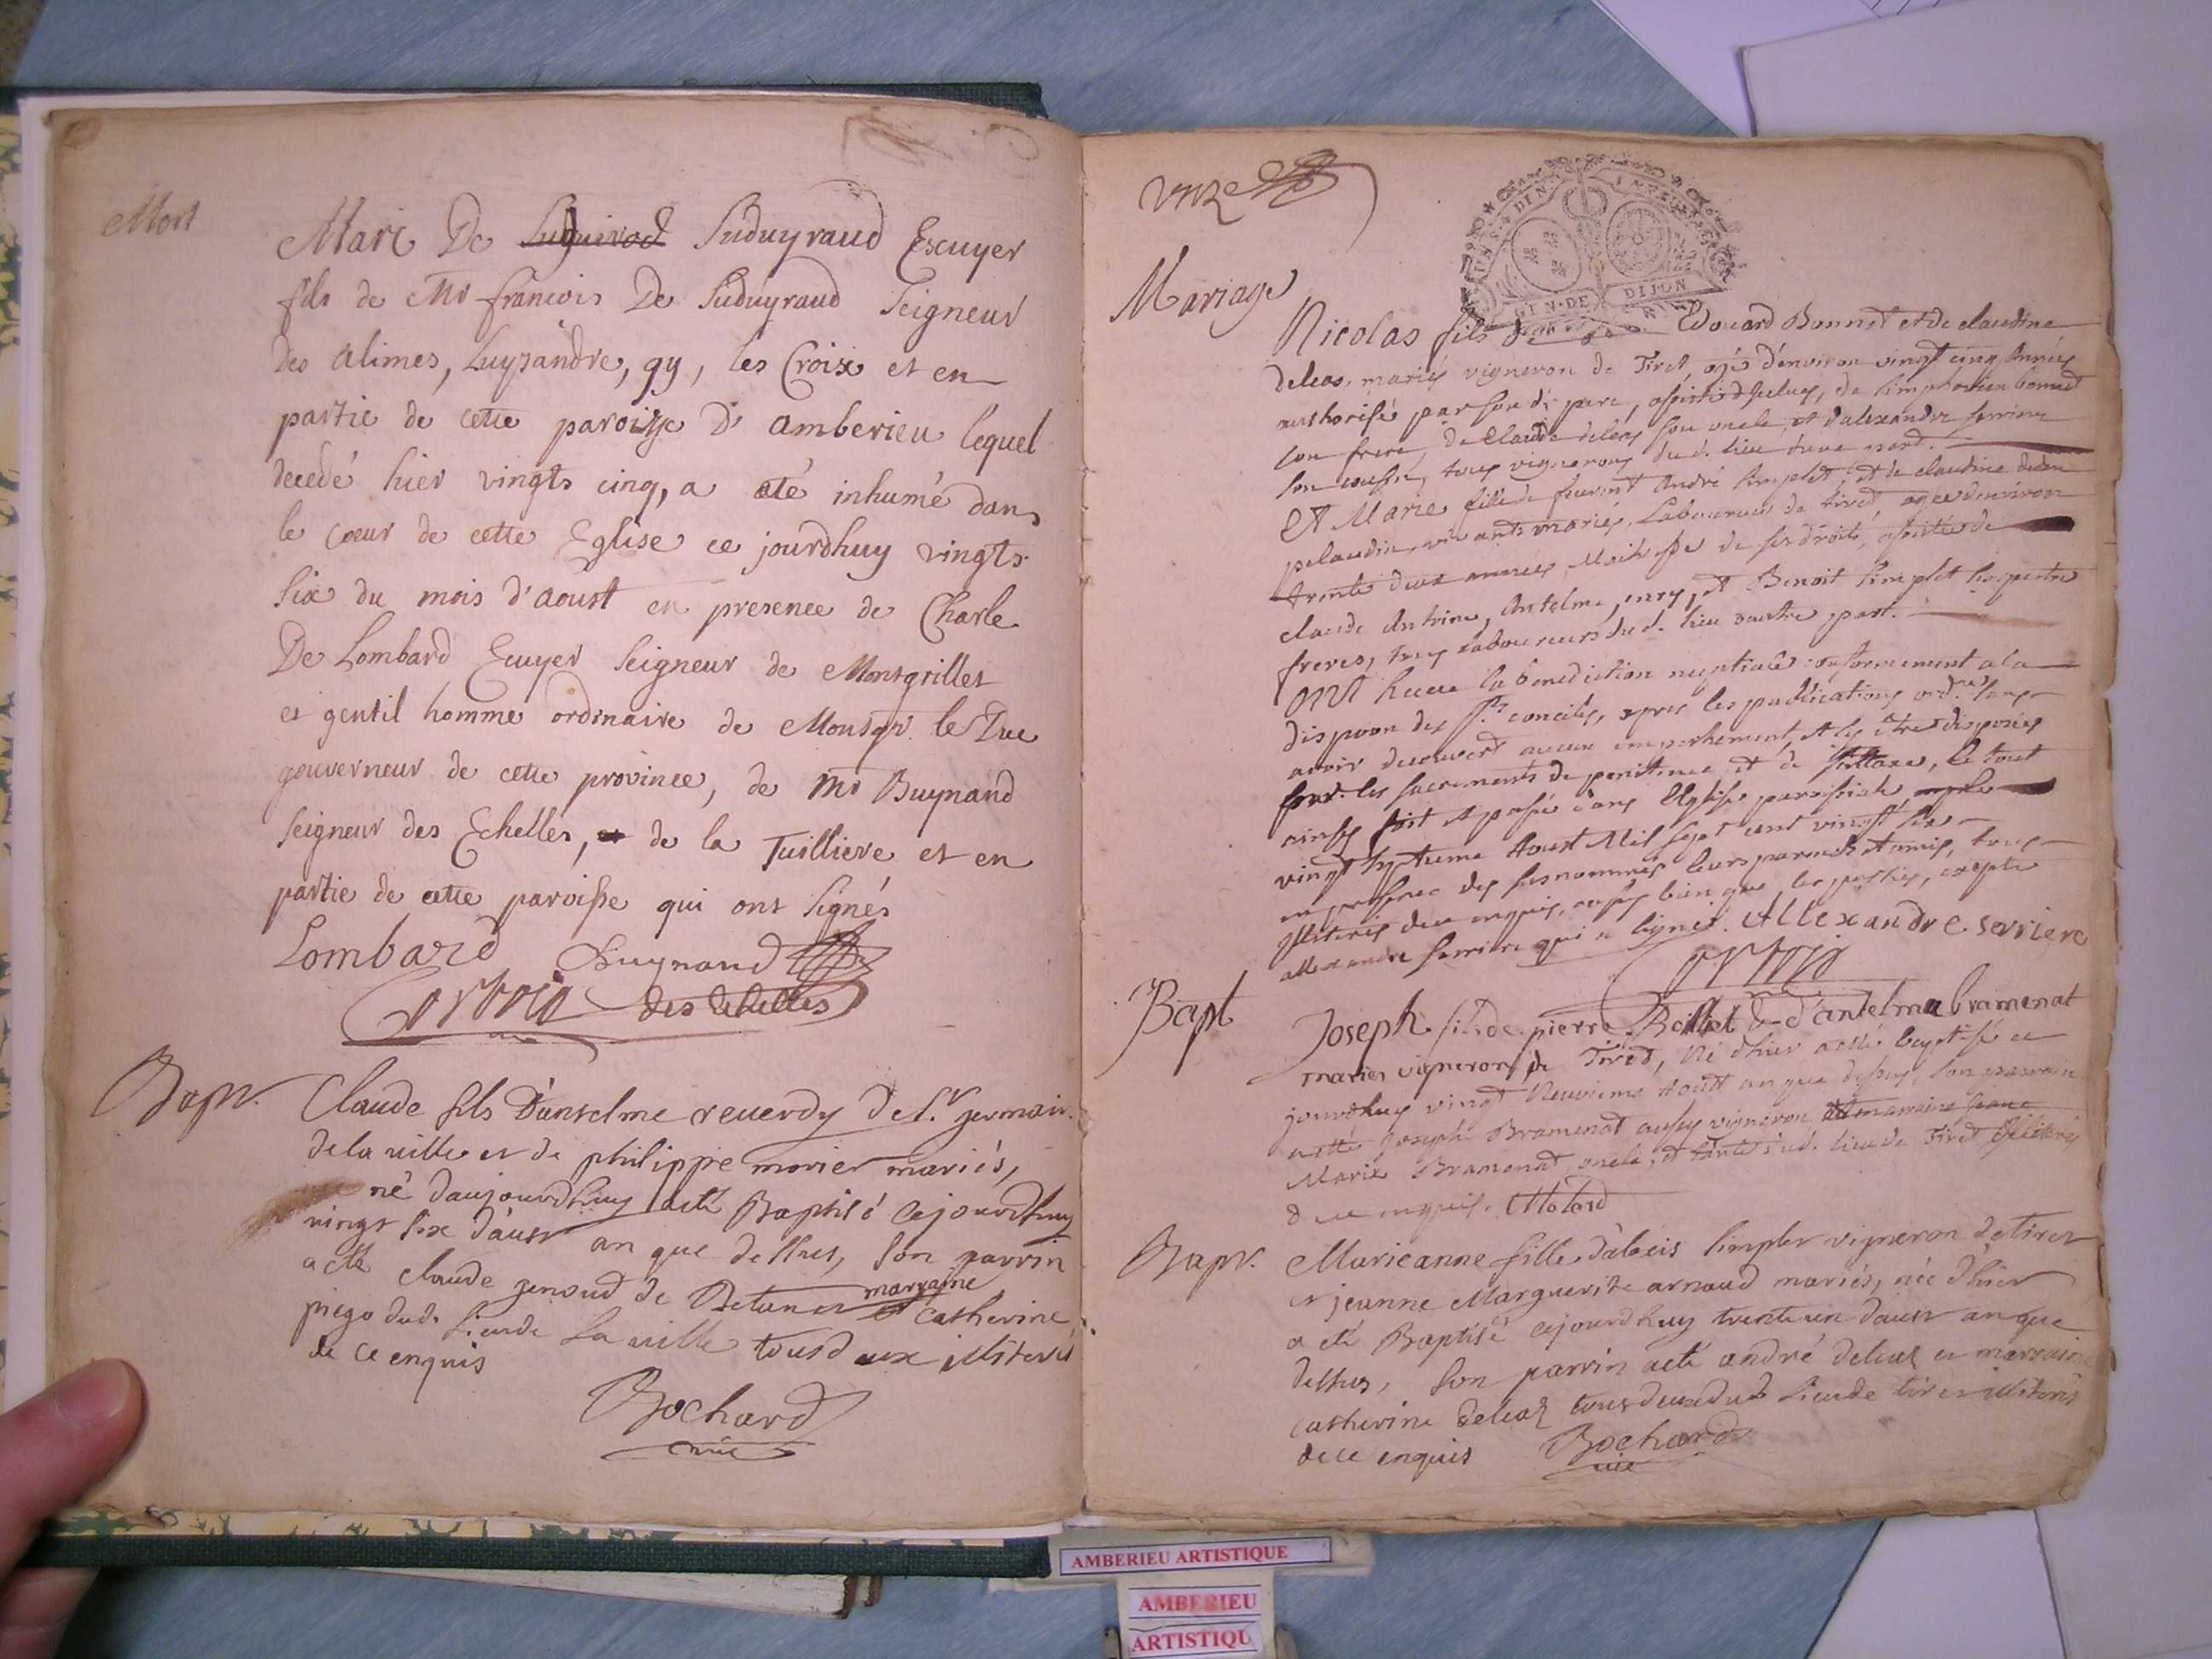 Mort
Marc De Suduyraud Escuyer
fils de Mr francois De Suduyraud Seigneur
Des alimes, Luyzandre, gy, les Croix et en
partie de cette paroisse D' amberieu lequel
decedé hier vingts cinq, a eté inhumé dans
le coeur de cette Eglise ce jourdhuy vingts
six du mois d'aoust en presence de Charle
De Lombard Ecuyer Seigneur de Montgrillet
et gentil homme ordinaire de Monsgr. le Duc
gouverneur de cette province, de Mr Buynand
seigneur des Echelles, de la Tuilliere et en
partie de cette paroisse qui ont signés
Lombard Buynand
des Echelles
Bapt.
Claude fils D'anselme reverdy de St germain
de la ville et de philippe morier mariés,
né daujourdhuy a eté Baptisé cejourdhuy
vingt six d'aust an que dessus, son parrin
a eté claude genoud de Betan et marraine catherine
dud. lieu de la ville tous deux illiterés
de ce enquis
Bochard
vic
unze
Mariage
DIJON
Nicolas fils d' Edouard Bonnet et de claudine
deleas, mariés vigneron de Tiret, agé d'environ vingt cinq années
authorisé par son d. pere, assisté d'iceluy, de simphorien bonnet
son frere, de Claude deleas son oncle, et d'alexandre serriere
son cousin, tous vignerons dud. lieu d'une part.
Et Marie fille de feurent André simplet, et de claudine
vivants mariés, Laboureurs de tiret, agée d'environ
trente deux années, Maitresse de ses droits, assistée de
claude Antoine, Antelme, et Benoit simplet ses quatre
freres, tous Laboureurs dud. lieu d'autre part.
Ont Receu la benediction nuptiale conformement a la
dispoon des Sts conciles, apres les publications ordres sans
avoir decouvert aucun empechement, et s'y être disposés
par les sacrements de penitence et de, le tout
ainsy fait et passé dans l'Eglise paroissiale
vingt septieme Aoust Mil sept cent vingt six
en presence des susnommés leurs parents et amis, tous
illiterés de ce enquis, aussy bien que les parties, excepté
allexandre serriere qui a signé. Allexandre serriere
Bapt
Joseph fils de pierre Bollet & d'antelma bramenat
mariés vigneron de Tiret, né d'hier a eté baptisé ce
jourdhuy vingt neuvieme Aoust an que dessus, son parrain
a eté Joseph Bramenat aussy vigneron
Marie Bramenat oncle, et tante dud. lieu de Tiret illiterés
de ce enquis. Molard
Bapt.
Marieanne fille d'alexis simplet vigneron de tiret
et jeanne Marguerite arnaud mariés, née d'hier
a eté Baptisé cejourdhuy trente un d'aust an que
dessus, son parrin a eté andré deleas et marraine
catherine deleas tous deux dud lieu de tiret illiterés
de ce enquis Bochard
vic
AMBERIEU ARTISTIQUE
AMBERIEU
ARTISTIQU